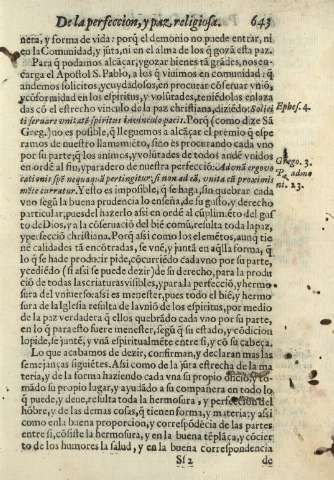 De la perfeccion, y paz, religiosa. 643
nera, y forma de vida: porq̃ el demonio no puede entrar, ni
en la Comunidad, y jũta, ni en el alma de los q̃ goza esta paz.
Para q̃ podamos alcãçar, y gozar bienes tã grãdes, nos en-
carga el Apostol S. Pablo, a los q̃ viuimos en comunidad: q̃
andemos solicitos, y cuydadosos, en procurar cõseruar vniõ,
y cõformidad en los espiritus, y volũtades, teniẽdolas enlaza
das cõ el estrecho vinculo de la paz christiana, diziẽdo: Solici
Ephes. 4.
ti seruare vnitatẽ spiritus in vinculo pacis. Porq̃ (como dize Sã
Greg.) no es posible, q̃ lleguemos a alcãçar el premio q̃ espe
ramos de nuestro llamamiẽto, sino es procurando cada vno
por su parte, q̃ los animos, y volũtades de todos andẽ vnidos
en ordẽ al fin, y paradero de nuestra perfecciõ: Ad onã ergo vo
Grego. 3.
cationis spẽ nequaquã pertingitur, si non ad eã, vnita cũ proximis
P. admo
mẽte curratur. Y esto es imposible, q̃ se haga, sin quebrar cada
ni. 23.
vno segũ la buena prudencia lo enseña, de su gusto, y derecho
particular, pues del hazerlo assi en ordẽ al suplimẽto del gus
to de Dios, y a la cõseruaciõ del biẽ comũ, resulta toda la paz,
y perfecciõ christiana. Porq̃ assi como los elemẽtos, aunq̃ tie
nẽ calidades tã encõtradas, se vnẽ, y jũtã en aq̃lla forma, q̃
lo q̃ se ha de produzir pide, cõcurriẽdo cada vno por su parte,
y cediẽdo (si assi se puede dezir) de su derecho, para la produ
ciõ de todas las criaturas visibles, y para la perfecciõ, y hermo-
sura del vniuerso: assi es menester, pues todo el biẽ, y hermo
sura de la Iglesia resulta de la vniõ de los espiritus, por medio
de la paz verdadera q̃ ellos quebrãdo cada vno por su parte,
en lo q̃ para esto fuere menester, segũ q̃ su estado, y cõdicion
lo pide, se juntẽ, y vnã espiritualmẽte entre si, y cõ su cabeça.
Lo que acabamos de dezir, confirman, y declaran mas las
semejanças siguiẽtes. Assi como de la jũta estrecha de la ma
teria, y de la forma haziendo cada vna su propio oficio, y to-
mãdo su propio lugar, y ayudãdo a su compañera en todo lo
q̃ puede, y deue, resulta toda la hermosura, y perfeccion del
hõbre, y de las demas cosas, q̃ tienen forma, y materia: y assi
como en la buena proporcion, y correspõdẽcia de las partes
entre si, cõsiste la hermosura, y en la buena tẽplãça, y cõcier
to de los humores la salud, y en la buena correspondencia
Sſ 2 de